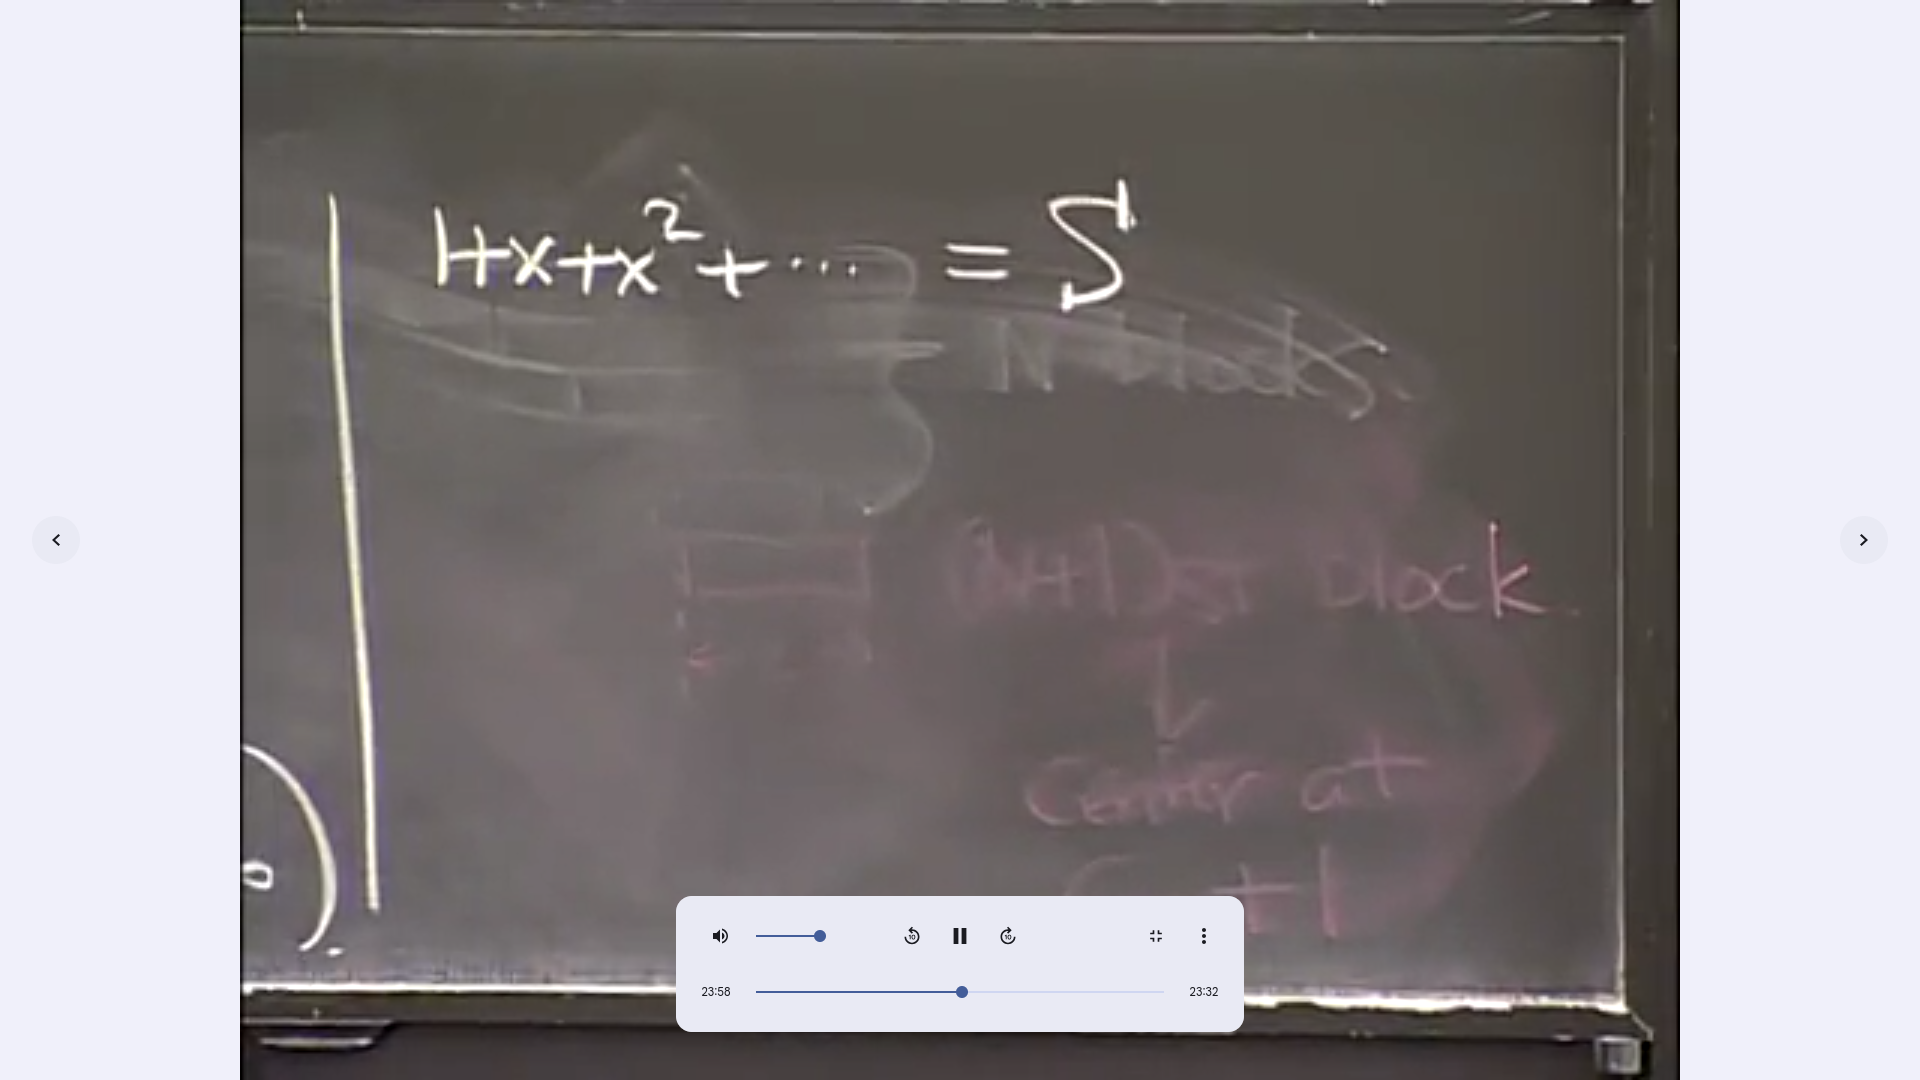 1+x+x²+··· = S
N blocks.
(N+1)st block.
↓
center at
C +1
23:58
23:32